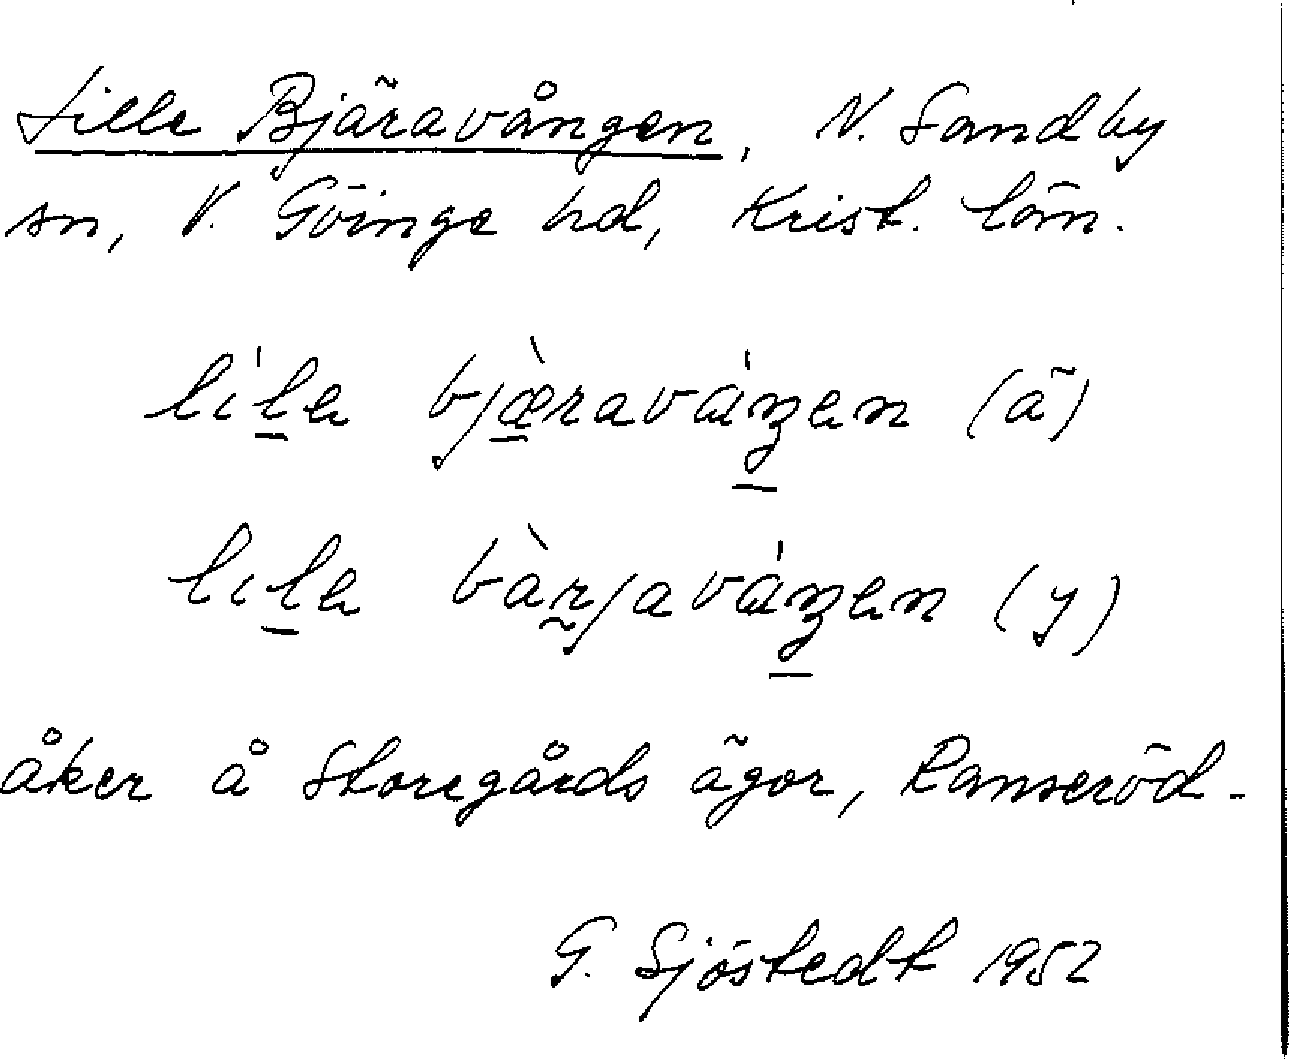 Lille Bjäravången, N. Sandby
sn, V. Göinge hd, Krist. län.
lila bjæravåŋen (ä)
lila bàrjavåŋen (y)
åker å Storegårds ägor, Ranseröd.
G. Sjöstedt 1952